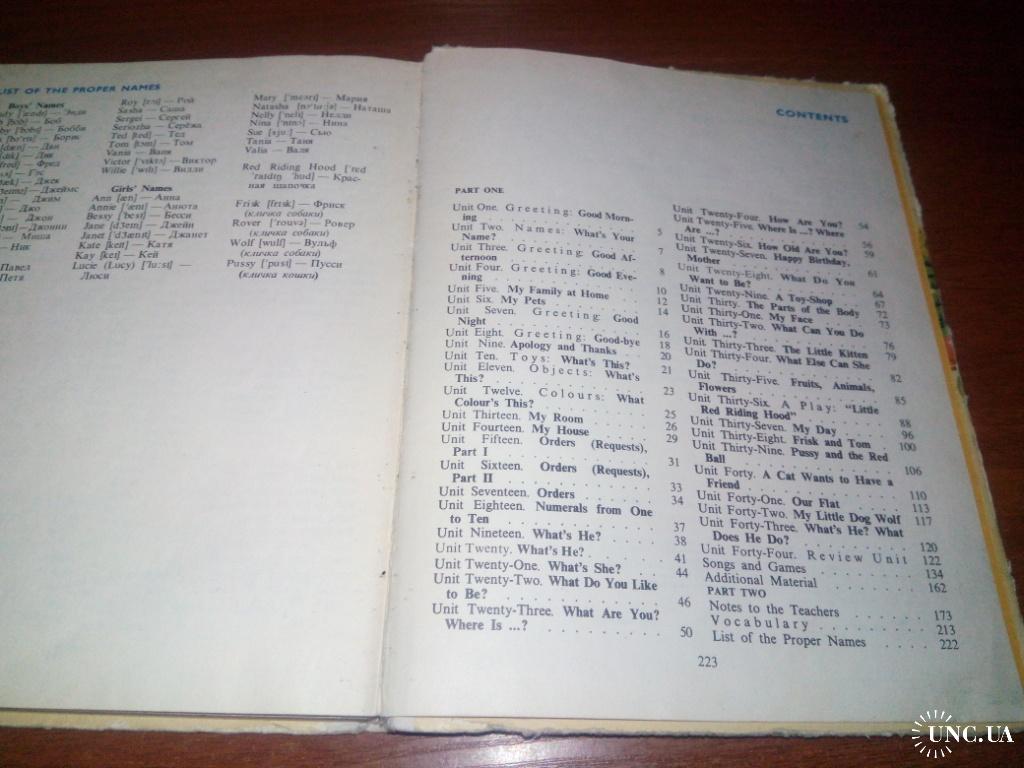 LIST OF THE PROPER NAMES
Boys' Names
— Энди
— Боб
— Бобби
— Борис
— Дан
— Дик
— Фред
— Гэс
— Джек
— Джеймс
— Джим
— Джо
— Джон
— Джонни
— Миша
— Ник
Павел
Петя
Roy [rɔɪ] — Рой
Sasha — Саша
Sergei — Сергей
Seriozha — Серёжа
Ted [ted] — Тед
Tom [tɔm] — Том
Vania — Ваня
Victor ['vɪktə] — Виктор
Willie ['wɪlɪ] — Вилли
Girls' Names
Ann [æn] — Анна
Annie ['ænɪ] — Анюта
Bessy ['besɪ] — Бесси
Jane [dʒeɪn] — Джейн
Janet ['dʒænɪt] — Джанет
Kate [keɪt] — Катя
Kay [keɪ] — Кей
Lucie (Lucy) ['lu:sɪ] —
Люси
Mary ['mɛərɪ] — Мария
Natasha [nə'tɑ:ʃə] — Наташа
Nelly ['nelɪ] — Нелли
Nina ['ni:nə] — Нина
Sue [sju:] — Сью
Tania — Таня
Valia — Валя
Red Riding Hood ['red
'raɪdɪŋ 'hud] — Крас-
ная шапочка
Frisk [frɪsk] — Фриск
(кличка собаки)
Rover ['rouvə] — Ровер
(кличка собаки)
Wolf [wulf] — Вульф
(кличка собаки)
Pussy ['pusɪ] — Пусси
(кличка кошки)
CONTENTS
PART ONE
Unit One. Greeting: Good Morn-
ing . . . . . . . . . . 5
Unit Two. Names: What's Your
Name? . . . . . . . . . 7
Unit Three. Greeting: Good Af-
ternoon . . . . . . . . 8
Unit Four. Greeting: Good Eve-
ning . . . . . . . . . . 10
Unit Five. My Family at Home 12
Unit Six. My Pets . . . . . 14
Unit Seven. Greeting: Good
Night . . . . . . . . . 16
Unit Eight. Greeting: Good-bye 18
Unit Nine. Apology and Thanks . 20
Unit Ten. Toys: What's This? . 21
Unit Eleven. Objects: What's
This? . . . . . . . . . 23
Unit Twelve. Colours: What
Colour's This? . . . . . . 25
Unit Thirteen. My Room . . . 26
Unit Fourteen. My House . . . 29
Unit Fifteen. Orders (Requests),
Part I . . . . . . . . . 31
Unit Sixteen. Orders (Requests),
Part II . . . . . . . . . 33
Unit Seventeen. Orders . . . . 34
Unit Eighteen. Numerals from One
to Ten . . . . . . . . . 37
Unit Nineteen. What's He? . . . 38
Unit Twenty. What's He? . . . 41
Unit Twenty-One. What's She? . . 44
Unit Twenty-Two. What Do You Like
to Be? . . . . . . . . . 46
Unit Twenty-Three. What Are You?
Where Is ...? . . . . . . . 50
Unit Twenty-Four. How Are You? 54
Unit Twenty-Five. Where Is ...? Where
Are ...? . . . . . . . . 56
Unit Twenty-Six. How Old Are You? 59
Unit Twenty-Seven. Happy Birthday,
Mother . . . . . . . . . 61
Unit Twenty-Eight. What Do You
Want to Be? . . . . . . . 64
Unit Twenty-Nine. A Toy-Shop . 67
Unit Thirty. The Parts of the Body 72
Unit Thirty-One. My Face . . . 73
Unit Thirty-Two. What Can You Do
With ...? . . . . . . . . 76
Unit Thirty-Three. The Little Kitten 79
Unit Thirty-Four. What Else Can She
Do? . . . . . . . . . . 82
Unit Thirty-Five. Fruits, Animals,
Flowers . . . . . . . . . 85
Unit Thirty-Six. A Play: "Little
Red Riding Hood" . . . . . 88
Unit Thirty-Seven. My Day . . 96
Unit Thirty-Eight. Frisk and Tom . 100
Unit Thirty-Nine. Pussy and the Red
Ball . . . . . . . . . . 106
Unit Forty. A Cat Wants to Have a
Friend . . . . . . . . . 110
Unit Forty-One. Our Flat . . . 113
Unit Forty-Two. My Little Dog Wolf 117
Unit Forty-Three. What's He? What
Does He Do? . . . . . . . 120
Unit Forty-Four. Review Unit 122
Songs and Games . . . . . . 134
Additional Material . . . . . 162
PART TWO
Notes to the Teachers . . . . 173
Vocabulary . . . . . . . . 213
List of the Proper Names . . . . 222
223
UNC.UA